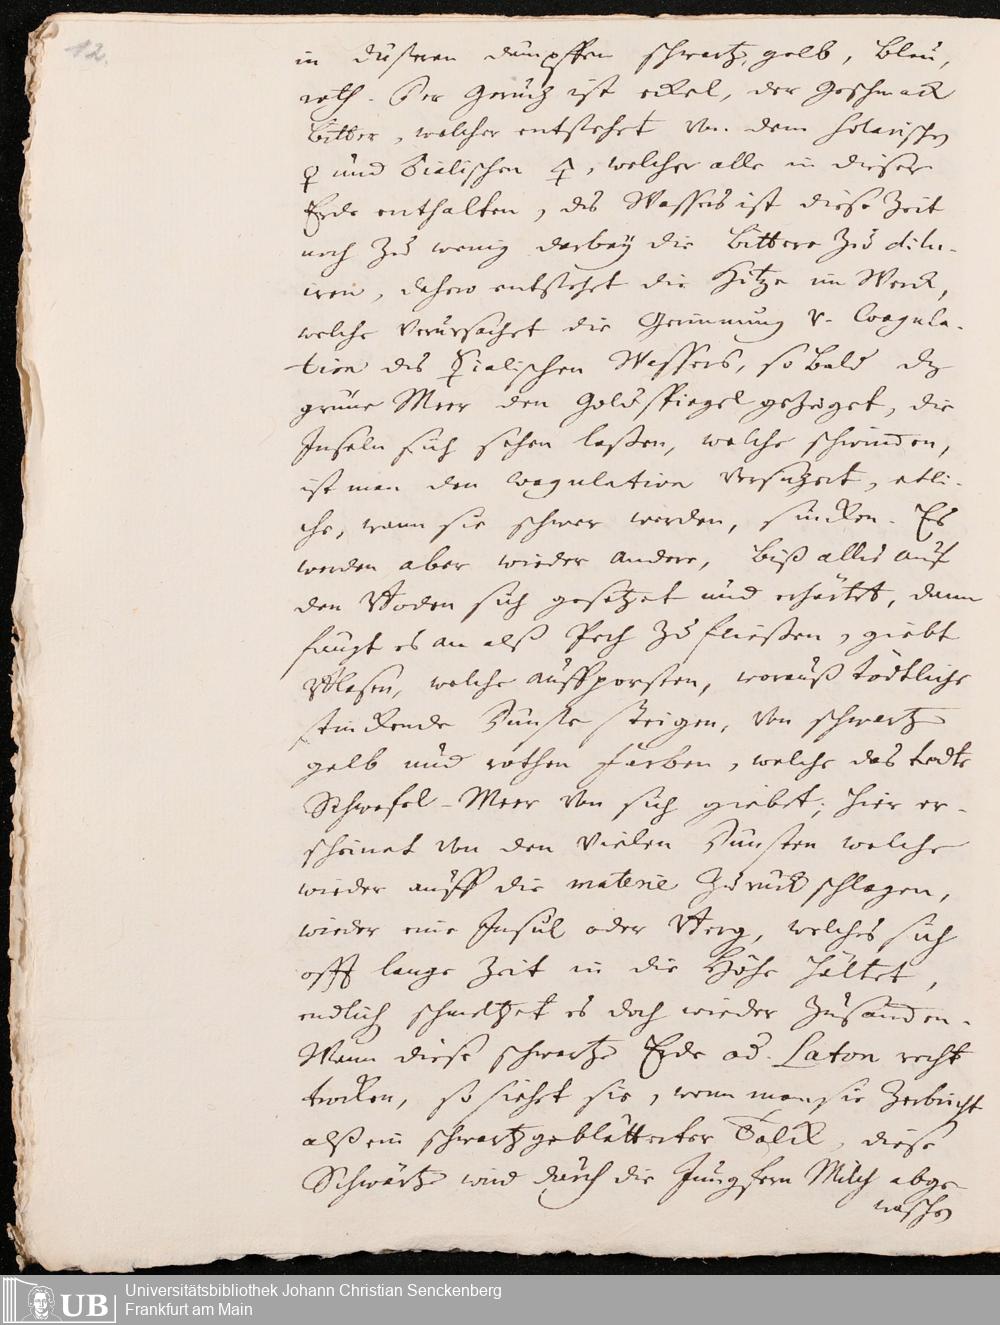 12.
in düstren dämpffen schwartz, gelb, blau,
roth. Der Geruch ist eckel, der Geschmack
bitter, welcher entstehet von dem Solarischen
und ☿ialischen 🜍, welcher alle in dieser
Erde enthalten, des Wassers ist diese Zeit
noch zu wenig darbey die bittere zu dilu-
iren, daher entstehet die Hitze im Werck,
welche verursachet die Gerinnung v. Coagula-
tion des ☿ialischen Wassers, so bald dz
grüne Meer den Goldspiegel gezeiget, die
Inseln sich sehen laßen, welche schwinden,
ist man den Coagulation versichert, etli-
che, wann sie schwer werden, sincken. Es
werden aber wieder andere, biß alles auf
den Boden sich gesetzet und erhärtet, dann
fangt es an alß Pech zu fließen, giebt
Blasen, welche auffporsten, worauß tödtliche
stinckende Dünste steigen, von schwartz
gelb und rothen farben, welche das todte
Schwefel-Meer von sich giebet; hier er-
scheinet von den vielen Dünsten welche
wieder auff die materie zurück schlagen,
wieder eine Insul oder Berg, welches sich
offt lange Zeit in die Höhe hältet,
endlich schmeltzet es doch wieder
Wann diese schwartze Erde od. Laton recht
trocken, so siehet sie, wenn man sie zerbricht
alß ein schwartzgeblätterter Talck, diese
Schwärtze wird durch die Jungfern Milch abge-
waschen
UB Universitätsbibliothek Johann Christian Senckenberg
Frankfurt am Main